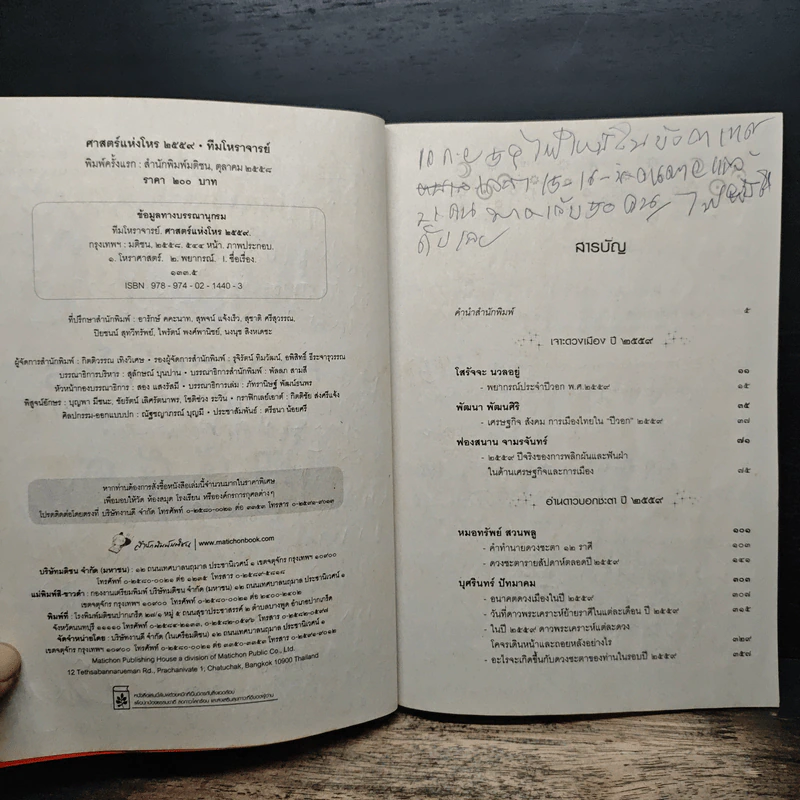 ศาสตร์แห่งโหร ๒๕๕๙ • ทีมโหราจารย์
พิมพ์ครั้งแรก : สำนักพิมพ์มติชน, ตุลาคม ๒๕๕๘
ราคา ๒๐๐ บาท
ข้อมูลทางบรรณานุกรม
ทีมโหราจารย์. ศาสตร์แห่งโหร ๒๕๕๙.
กรุงเทพฯ : มติชน, ๒๕๕๘. ๕๔๔ หน้า. ภาพประกอบ.
๑. โหราศาสตร์. ๒. พยากรณ์. I. ชื่อเรื่อง.
๑๓๓.๕
ISBN 978 - 974 - 02 - 1440 - 3
ที่ปรึกษาสำนักพิมพ์ : อารักษ์ คคะนาท, สุพจน์ แจ้งเร็ว, สุชาติ ศรีสุวรรณ,
ปิยชนน์ สุทวีทรัพย์, ไพรัตน์ พงศ์พานิชย์, นงนุช สิงหเดชะ
ผู้จัดการสำนักพิมพ์ : กิตติวรรณ เทิงวิเศษ • รองผู้จัดการสำนักพิมพ์ : รุจิรัตน์ ทิมวัฒน์, อพิสิทธิ์ ธีระจารุวรรณ
บรรณาธิการบริหาร : สุลักษณ์ บุนปาน • บรรณาธิการสำนักพิมพ์ : พัลลภ สามสี
หัวหน้ากองบรรณาธิการ : สอง แสงรัสมี • บรรณาธิการเล่ม : ภัทรานิษฐ์ พัฒน์ธนพร
พิสูจน์อักษร : บุญพา มีชนะ, ชัยรัตน์ เลิศรัตนาพร, โชติช่วง ระวิน • กราฟิกเลย์เอาต์ : กิตติชัย ส่งศรีแจ้ง
ศิลปกรรม-ออกแบบปก : ณัฐชญาภรณ์ บุญมี • ประชาสัมพันธ์ : ตรีธนา น้อยศรี
หากท่านต้องการสั่งซื้อหนังสือเล่มนี้จำนวนมากในราคาพิเศษ
เพื่อมอบให้วัด ห้องสมุด โรงเรียน หรือองค์กรการกุศลต่างๆ
โปรดติดต่อโดยตรงที่ บริษัทงานดี จำกัด โทรศัพท์ ๐-๒๕๘๐-๐๐๒๑ ต่อ ๓๓๕๓ โทรสาร ๐-๒๕๙๑-๙๐๑๒
สำนักพิมพ์มติชน | www.matichonbook.com
บริษัทมติชน จำกัด (มหาชน) : ๑๒ ถนนเทศบาลนฤมาล ประชานิเวศน์ ๑ เขตจตุจักร กรุงเทพฯ ๑๐๙๐๐
โทรศัพท์ ๐-๒๕๘๐-๐๐๒๑ ต่อ ๑๒๓๕ โทรสาร ๐-๒๕๘๙-๕๘๑๘
แม่พิมพ์สี-ขาวดำ : กองงานเตรียมพิมพ์ บริษัทมติชน จำกัด (มหาชน) ๑๒ ถนนเทศบาลนฤมาล ประชานิเวศน์ ๑
เขตจตุจักร กรุงเทพฯ ๑๐๙๐๐ โทรศัพท์ ๐-๒๕๘๐-๐๐๒๑ ต่อ ๒๔๐๐-๒๔๐๒
พิมพ์ที่ : โรงพิมพ์มติชนปากเกร็ด ๒๗/๑ หมู่ ๕ ถนนสุขาประชาสรรค์ ๒ ตำบลบางพูด อำเภอปากเกร็ด
จังหวัดนนทบุรี ๑๑๑๒๐
จัดจำหน่ายโดย : บริษัทงานดี จำกัด (ในเครือมติชน) ๑๒ ถนนเทศบาลนฤมาล ประชานิเวศน์ ๑
เขตจตุจักร กรุงเทพฯ ๑๐๙๐๐ โทรศัพท์ ๐-๒๕๘๐-๐๐๒๑ ต่อ ๓๓๕๐-๓๓๕๓ โทรสาร ๐-๒๕๙๑-๙๐๑๒
Matichon Publishing House a division of Matichon Public Co., Ltd.
12 Tethsabannarueman Rd., Prachanivate 1, Chatuchak, Bangkok 10900 Thailand
สารบัญ
คำนำสำนักพิมพ์ ๕
เจาะดวงเมือง ปี ๒๕๕๙
โสรัจจะ นวลอยู่ ๑๑
- พยากรณ์ประจำปีวอก พ.ศ.๒๕๕๙ ๑๕
พัฒนา พัฒนศิริ ๓๕
- เศรษฐกิจ สังคม การเมืองไทยใน "ปีวอก" ๒๕๕๙ ๓๗
ฟองสนาน จามรจันทร์ ๗๑
- ๒๕๕๙ ปีจริงของการพลิกผันและพ้นฝ่า
ในด้านเศรษฐกิจและการเมือง ๗๕
อ่านดาวบอกชะตา ปี ๒๕๕๙
หมอทรัพย์ สวนพลู ๑๐๑
- คำทำนายดวงชะตา ๑๒ ราศี ๑๐๓
- ดวงชะตารายสัปดาห์ตลอดปี ๒๕๕๙ ๑๔๑
บุศรินทร์ ปัทมาคม ๓๐๓
- อนาคตดวงเมืองในปี ๒๕๕๙ ๓๐๗
- วันที่ดาวพระเคราะห์ย้ายราศีในแต่ละเดือน ปี ๒๕๕๙ ๓๑๕
- ในปี ๒๕๕๙ ดาวพระเคราะห์แต่ละดวง
โคจรเดินหน้าและถอยหลังอย่างไร ๓๒๙
- อะไรจะเกิดขึ้นกับดวงชะตาของท่านในรอบปี ๒๕๕๙ ๓๕๗